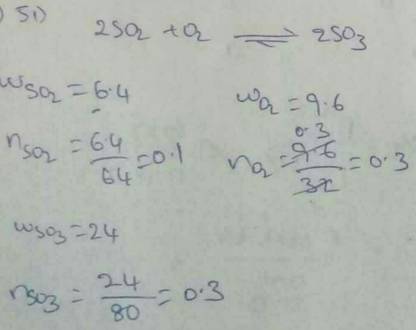 ) 51)
2SO₂ + O₂ ⇌ 2SO₃
wSO₂ = 6.4
wO₂ = 9.6
nSO₂ = 64/64 = 0.1
nO₂ = 0.3 9.6/32 = 0.3
wSO₃ = 24
nSO₃ = 24/80 = 0.3